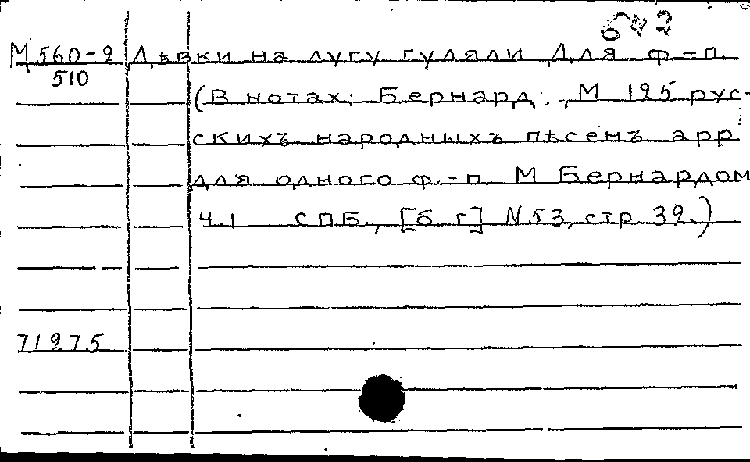 642
М 560-2 Дѣвки на лугу гуляли Для ф-п.
510
(В нотах: Бернард, М 125 рус-
скихъ народныхъ пѣсенъ арр
для одного ф.-п М Бернардом
Ч.1 СПБ., [б г] N 53, стр 39.)
71275